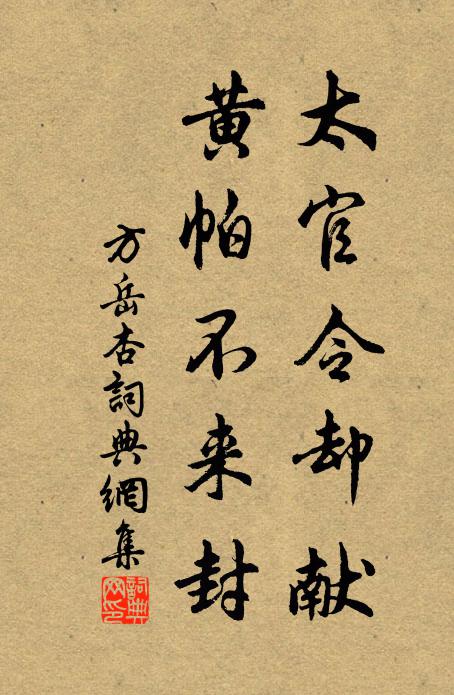 太官令却献
黄帕不来封
方岳杏詞典網集
詞典網印